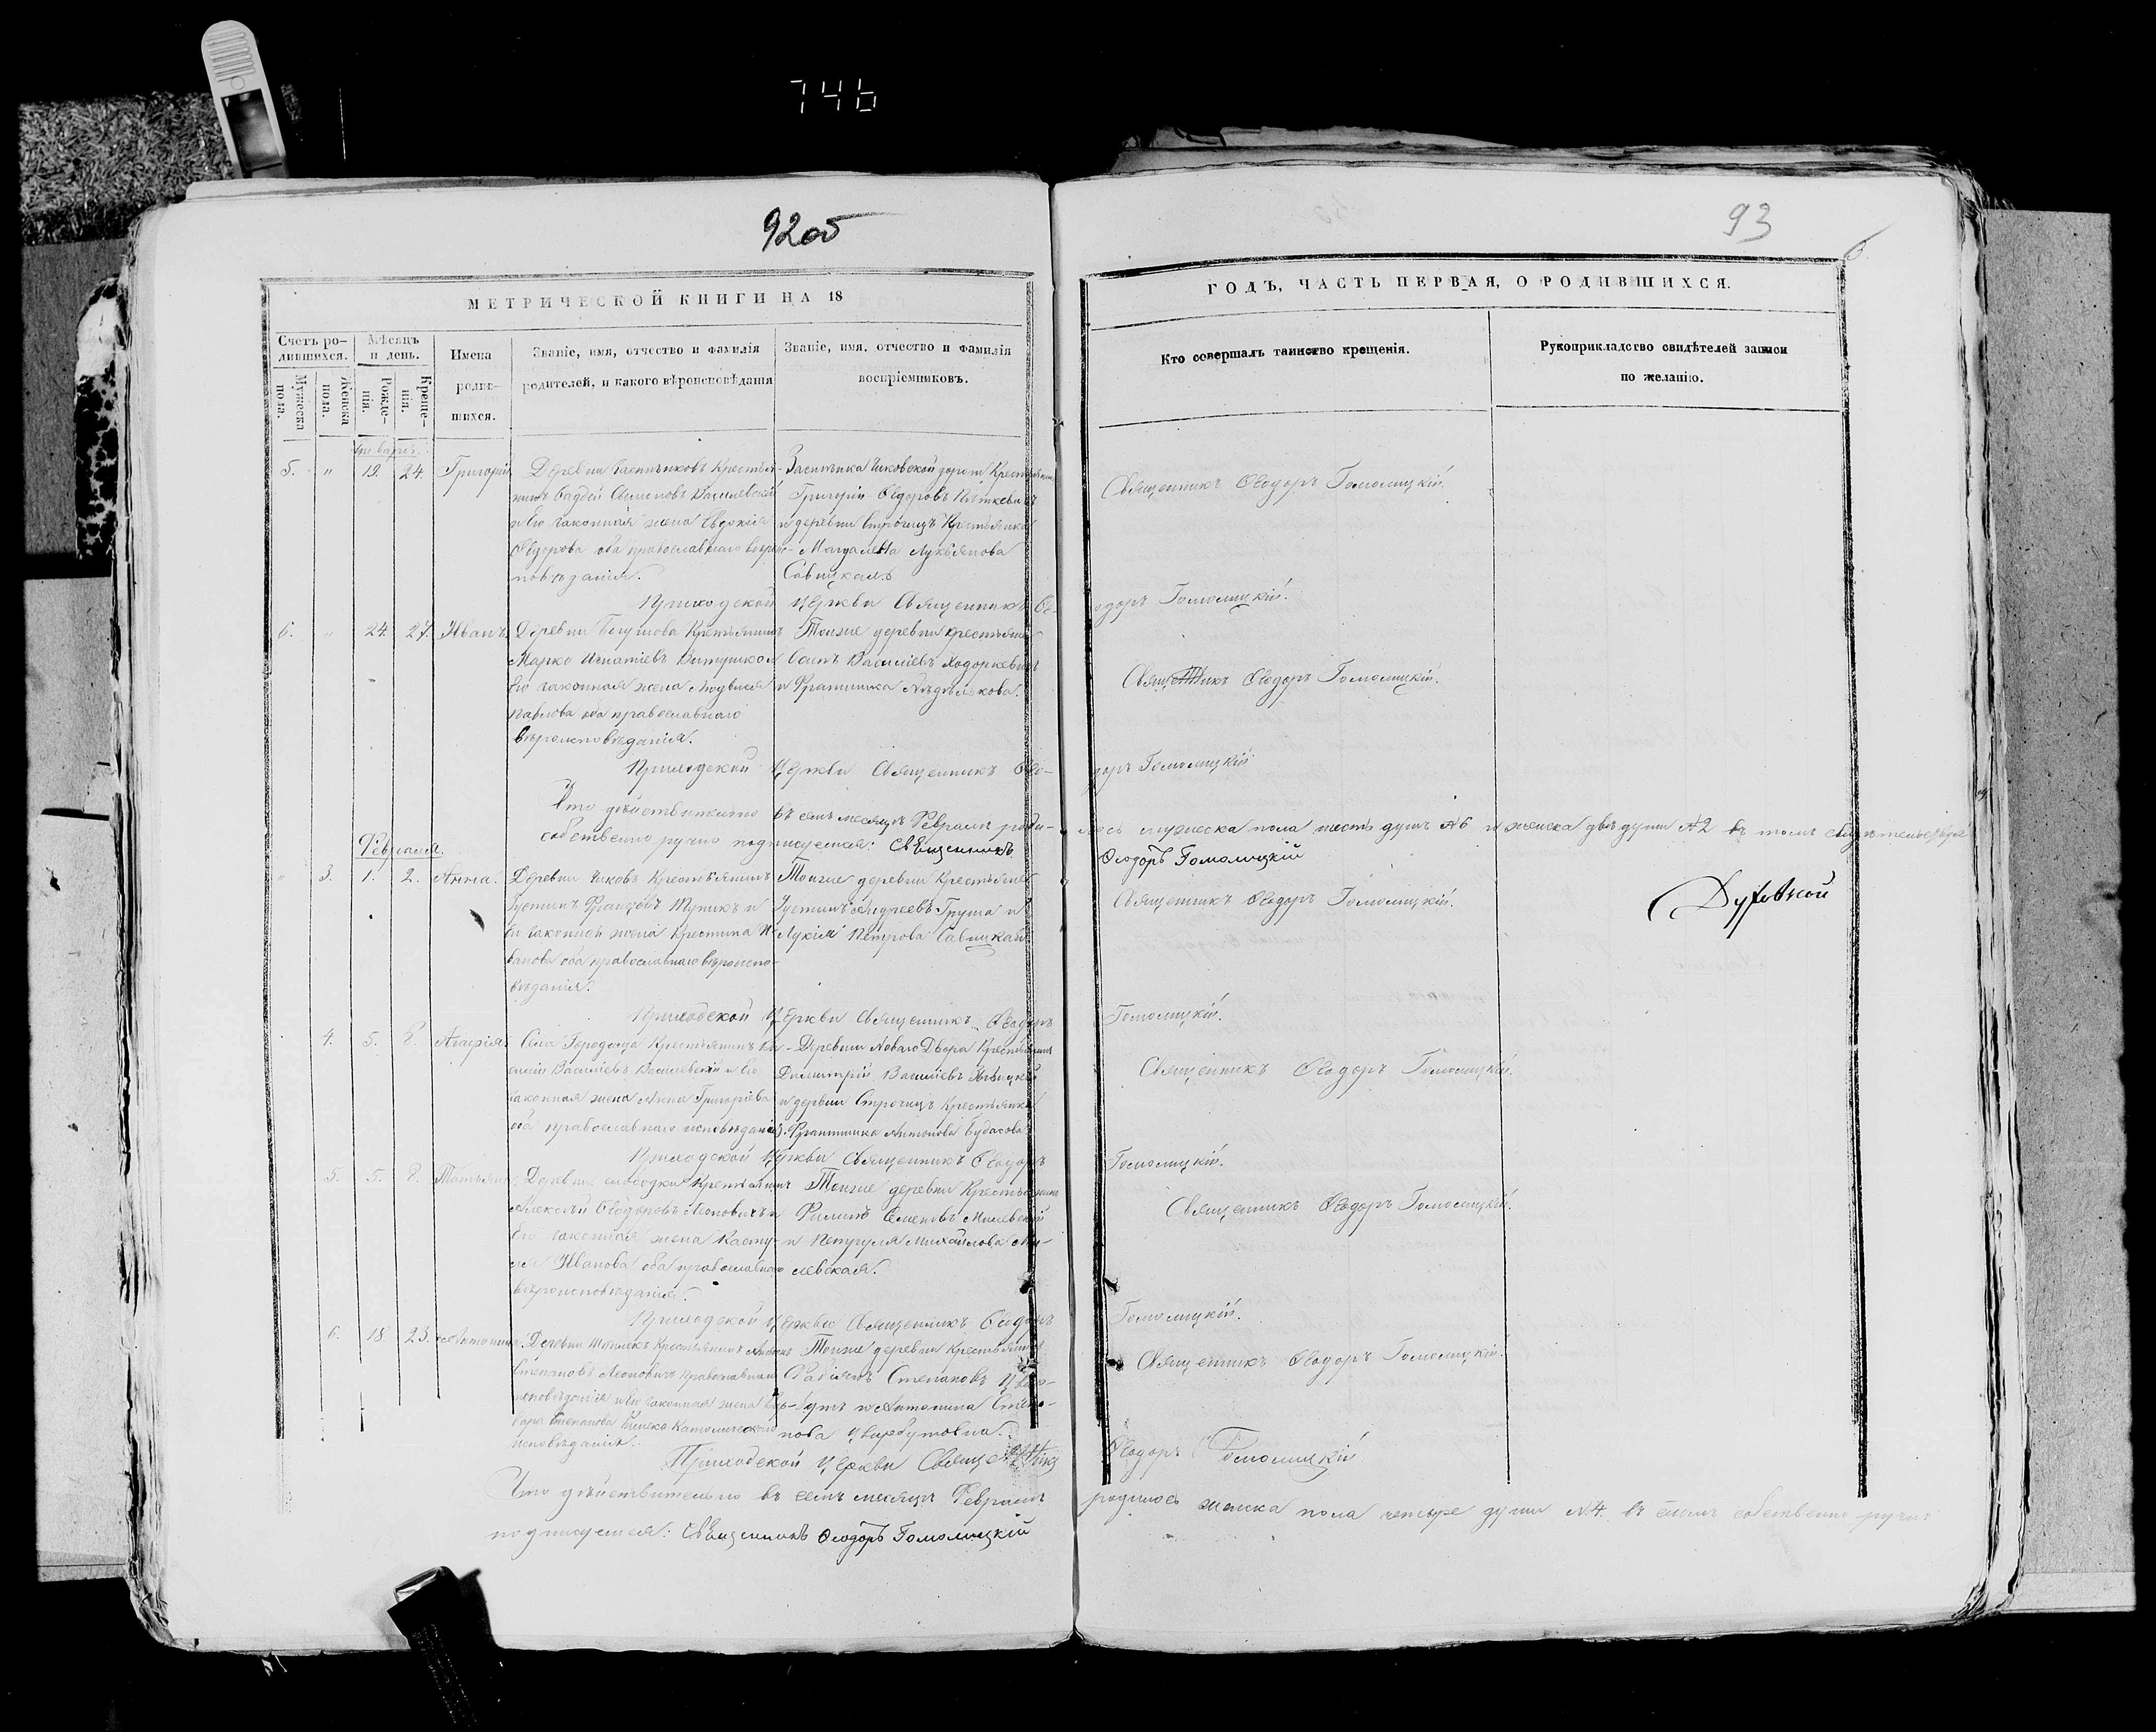 746
92об
93
6.
МЕТРИЧЕСКОЙ КНИГИ НА 18
ГОДЪ, ЧАСТЬ ПЕРВАЯ, О РОДИВШИХСЯ.
Счетъ ро-
дившихся.
Мужеска
пола.
Женска
пола.
Мѣсяцъ
и день.
Рожде-
нія.
Креще-
нія.
Имена
родив-
шихся.
Званіе, имя, отчество и фамилія
родителей, и какого вѣроисповѣданія
Званіе, имя, отчество и фамилія
воспріемниковъ.
Кто совершалъ таинство крещенія.
Рукоприкладство свидѣтелей записи
по желанію.
Январь.
5. " 19. 24. Григорій
Деревни Крестья-
нинъ Фадѣй Семеновъ Василевскій
и Его законная жена Евдокія
Ѳедорова оба православнаго вѣроис-
повѣданія.
Застѣнка Чиковской дороги Крестьянинъ
Григорій Ѳедоровъ
и деревни Строчицъ Крестьянка
Магдалена Лукьянова
Савицкая.
Священникъ Ѳеодоръ Гомолицкій.
Приходской Церкви Священникъ Ѳе-
одоръ Гомолицкій.
6. " 24. 27. Иванъ.
Деревни Богушова Крестьянинъ
Марко Игнатіевъ
Его законная жена Людвися
Павлова оба православнаго
вѣроисповѣданія.
Тоизже деревни Крестьянинъ
Василіевъ Ходоркевичъ
и Францишка
Священникъ Ѳеодоръ Гомолицкій.
Приходской Церкви Священникъ Ѳео-
доръ Гомолицкій
Что дѣйствительно въ семъ месяцѣ Февралѣ роди-
лось мужеска пола шесть душъ №6 и женска двѣ души №2 въ томъ
собственно ручно подписуемся: Священникъ
Ѳеодоръ Гомолицкій
Февраля.
" 3. 1. 2. Анна.
Деревни Чиковъ Крестьянинъ
Устинъ Францовъ и
Его законная жена Крестина И-
ванова оба православнаго вѣроиспо-
вѣданія.
Тоизже деревни Крестьянинъ
Устинъ Андреевъ Груша и
Лукія Петрова Савицкая
Священникъ Ѳеодоръ Гомолицкій.
Приходской Церкви Священникъ Ѳеодоръ
Гомолицкій.
4. 5. 8. Агафія.
Села Городища Крестьянинъ Ва-
силій Василіевъ Василевскій и Его
законная жена Анна Григоріева
оба православнаго исповѣданія.
Деревни Новаго Двора Крестьянинъ
Димитрій Василіевъ
и деревни Строчицъ Крестьянка
Францишка Антонова
Священникъ Ѳеодоръ Гомолицкій.
Приходской Церкви Священникъ Ѳеодоръ
Гомолицкій.
5. 5. 8. Татьяна.
Деревни слободки Крестьянинъ
Алексѣй Ѳеодоровъ Леоновичъ и
Его законная жена Касту-
ля Иванова оба православнаго
вѣроисповѣданія.
Тоизже деревни Крестьянинъ
Филипъ Семеновъ Милевскій
и Петруля Михайлова Ми-
левская.
Священникъ Ѳеодоръ Гомолицкій.
Приходской Церкви Священникъ Ѳеодоръ
Гомолицкій.
6. 18 23. Антонина.
Деревни Крестьянинъ
Степановъ Леоновичъ Православнаго
исповѣданія и Его законная жена Вар-
вара Степанова Римско Католическаго
исповѣданія.
Тоизже деревни Крестьянинъ
Фабіянъ Степановъ Цвир-
бутъ и Антонина Степа-
нова Цвирбутовна.
Священникъ Ѳеодоръ Гомолицкій.
Приходской Церкви Священникъ
Ѳеодоръ Гомолицкій
Что дѣйствительно въ семъ месяцѣ Февралѣ
родилось женска пола четыре души №4. въ томъ собственно ручно
подписуемся: Священникъ Ѳеодоръ Гомолицкій